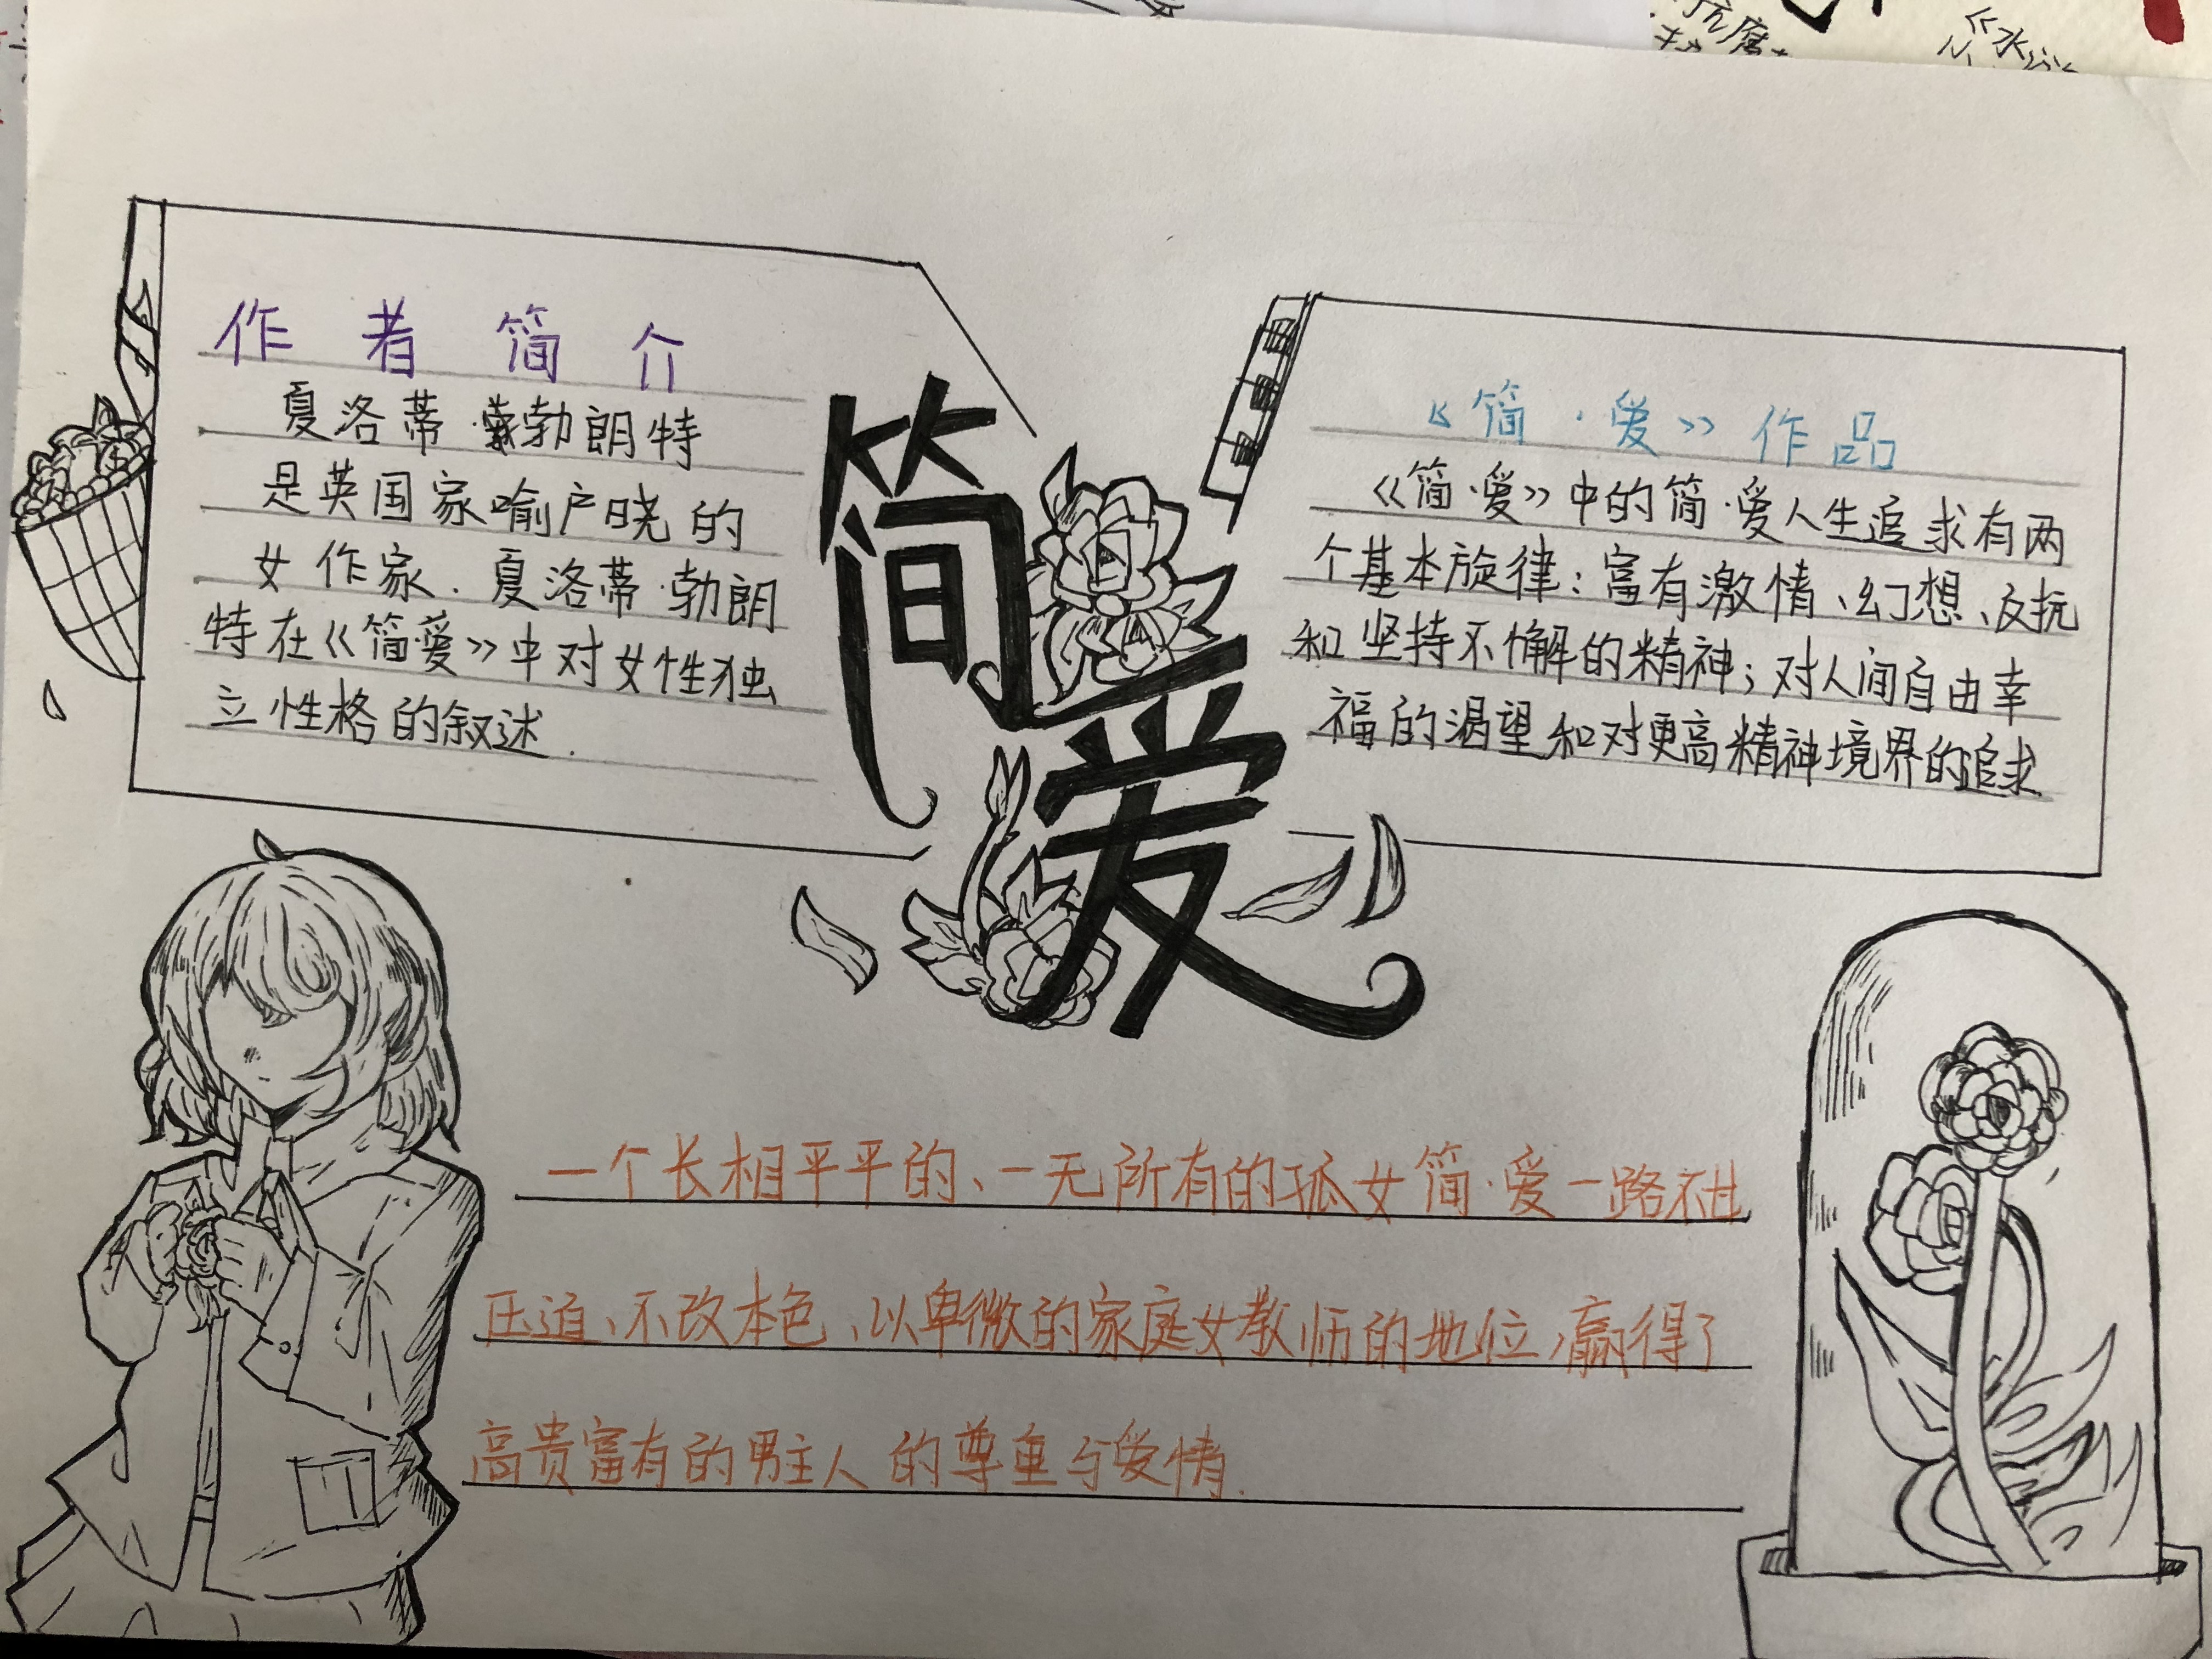 作者简介
夏洛蒂·勃朗特
是英国家喻户晓的
女作家.夏洛蒂·勃朗
特在《简爱》中对女性独
立性格的叙述.
简爱
《简·爱》作品
《简·爱》中的简·爱人生追求有两
个基本旋律:富有激情、幻想、反抗
和坚持不懈的精神;对人间自由幸
福的渴望和对更高精神境界的追求.
一个长相平平的、一无所有的孤女简·爱一路不甘
压迫、不改本色、以卑微的家庭女教师的地位,赢得了
高贵富有的男主人的尊重与爱情.